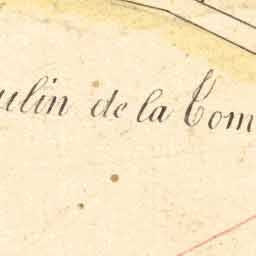 ulin de la Com